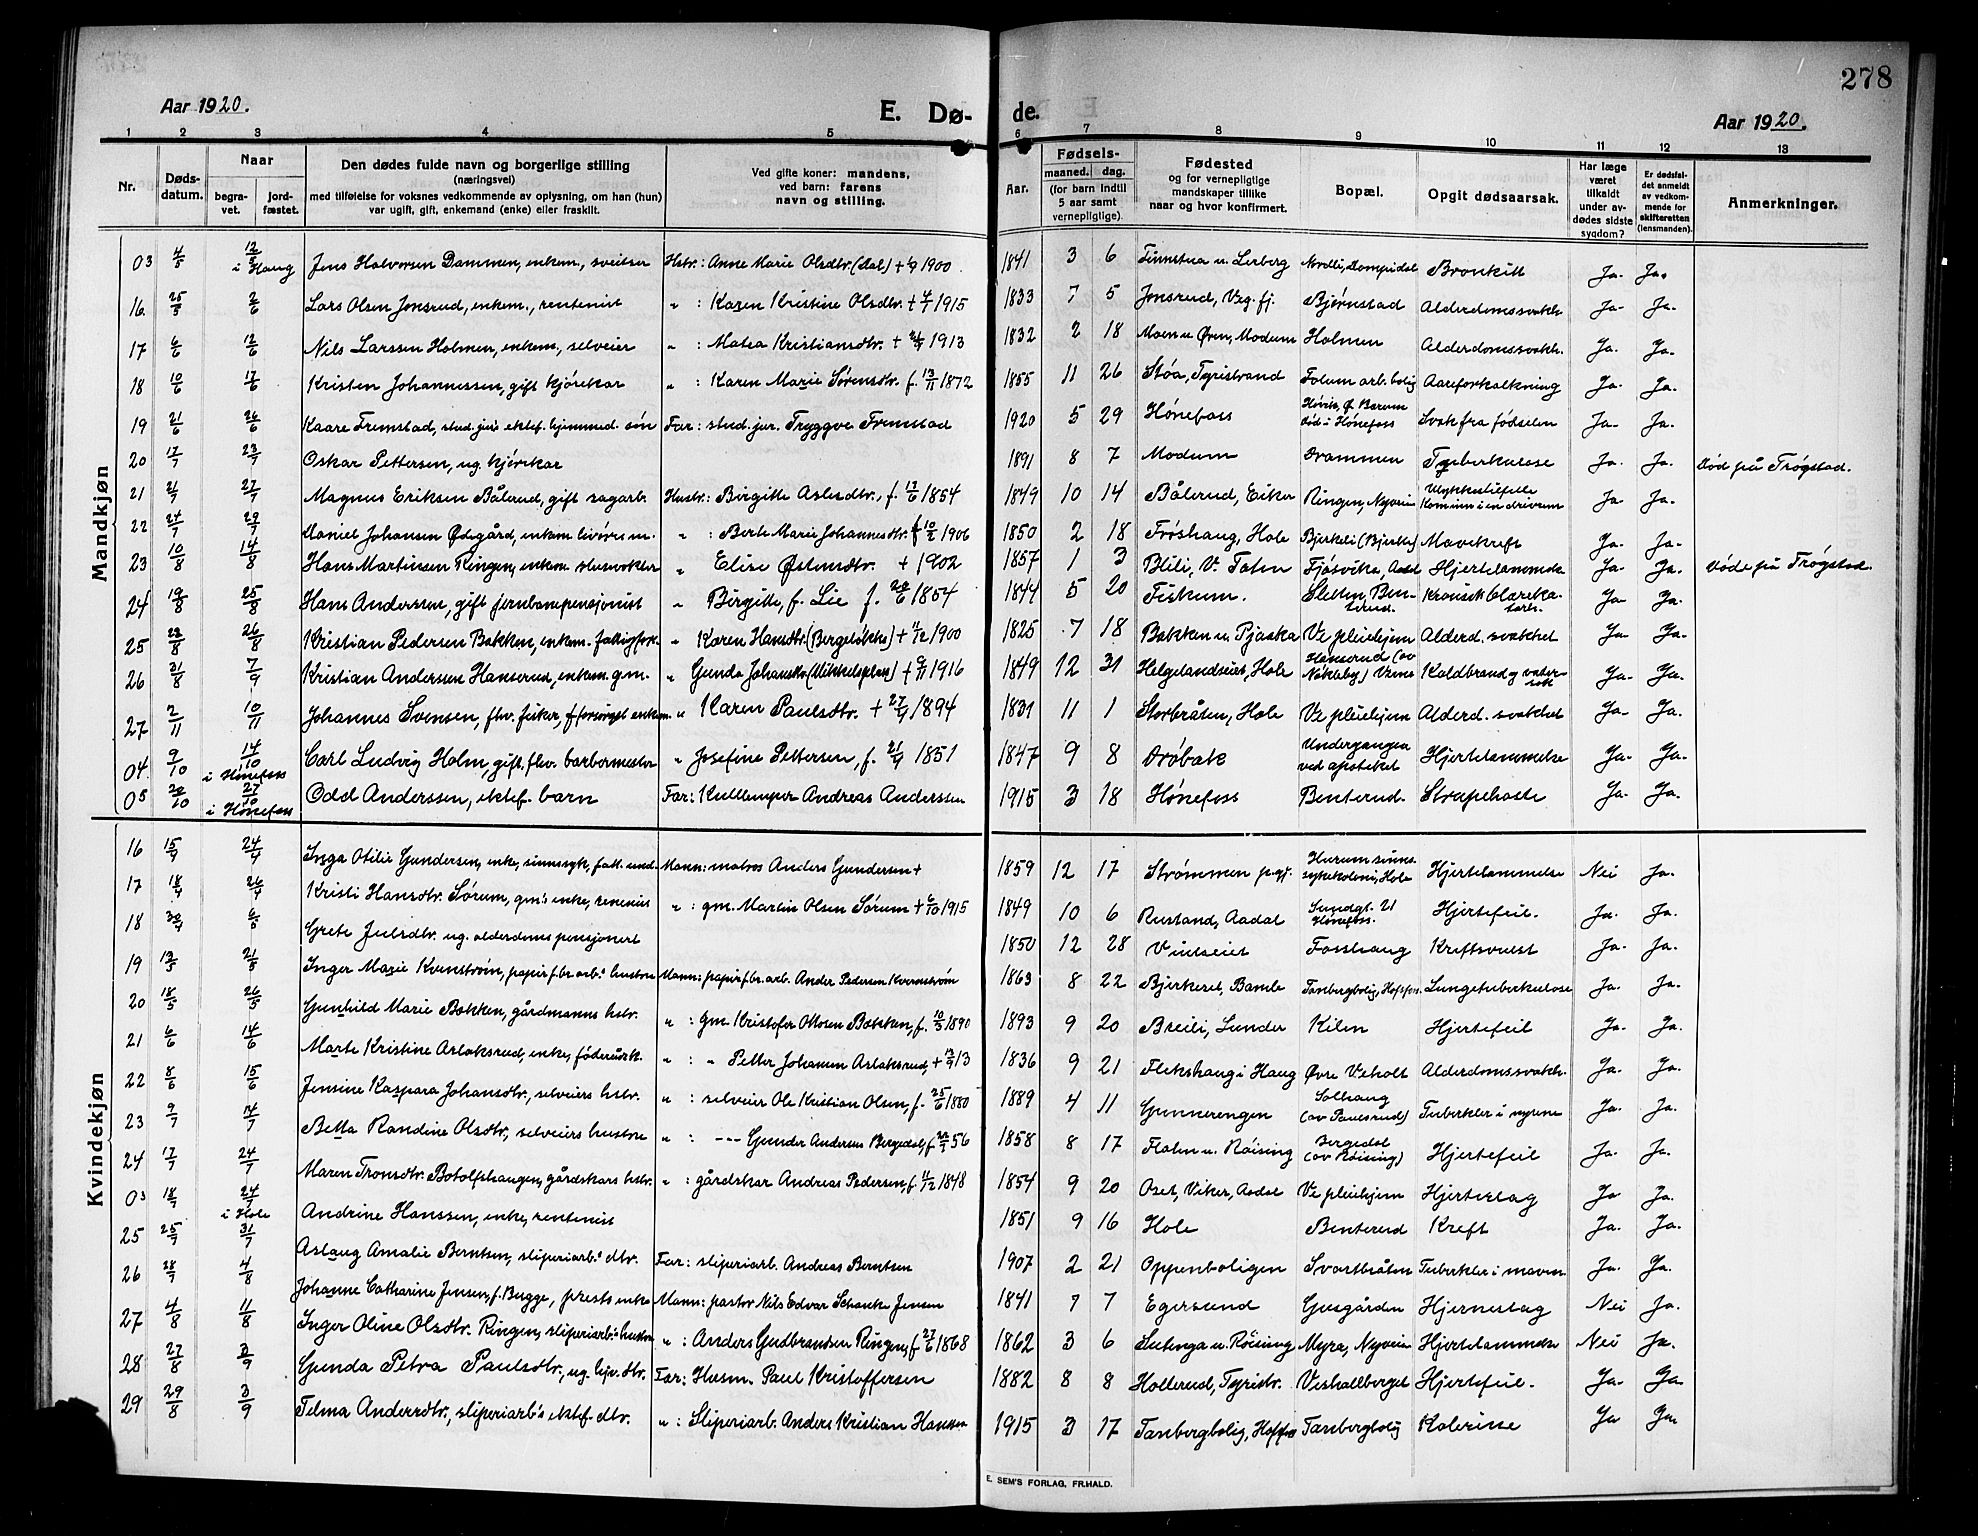 278
Aar 1920. E. Dø- de. Aar 1920.
1 2 3 4 5 6 7 8 9 10 11 12 13
Nr. Døds-datum. Naar begra-vet. jord-fæstet. Den dødes fulde navn og borgerlige stilling (næringsvei) med tilføielse for voksnes vedkommende av oplysning, om han (hun) var ugift, gift, enkemand (enke) eller fraskilt. Ved gifte koner: mandens, ved barn: farens navn og stilling. Aar. Fødsels- maaned. dag. (for barn indtil 5 aar samt vernepligtige). Fødested og for vernepligtige mandskaper tillike naar og hvor konfirmert. Bopæl. Opgit dødsaarsak. Har læge været tilkaldt under av-dødes sidste sygdom? Er dødsfal-det anmeldt av vedkom-mende for skifteretten (lensmanden). Anmerkninger.
Mandkjøn
03 4/5 12/5 i Haug Jens Halvorsen Dammen, enkem., sveitser Hstr.: Anne Marie Olsdtr. (Dal) + 1900 1841 3 6 Finnstua u. Lerberg Nordli, Bronkitt Ja. Ja.
16. 25/5 2/6 Lars Olsen Jonsrud, enkem., rentenist " : Karen Kristine Olsdtr. + 4/7 1915 1833 7 5 Jonsrud, Veg. fj. Bjørnstad Alderdomssvakh. Ja. Ja.
17 6/6 12/6 Nils Larssen Holmen, enkem., selveier " : Matea Kristiansdtr. + 1913 1832 2 18 Moen u. Øvre, Modum Holmen Alderdomssvakh. Ja. Ja.
18 10/6 17/6 Kristen Johannessen, gift kjørekar " : Karen Marie Sørensdtr. f. 13/11 1872 1855 11 26 Støa, Tyristrand Folum arb. bolig Aareforkalkning Ja. Ja.
19 21/6 26/6 Kaare Fremstad, stud. jur's ektef. hjemmed. søn Far: stud. jur. Tryggve Fremstad 1920 5 29 Hønefoss Høvik, Ø. Bærum død i Hønefoss Svak fra fødselen Ja. Ja.
20 17/7 23/7 Oskar Pettersen, ug. kjørekar 1891 8 7 Modum Drammen Tuberkulose Ja. Ja. Død på Trøgstad.
21 21/7 27/7 Magnus Eriksen Bålerud, gift sagarb. Hustr.: Birgitte Aslesdtr., f. 13/6 1854 1849 10 14 Bålerud, Eiker Ringen, Nyveien Ulykkestilfelle Kom inn i en drivrem Ja. Ja.
22 24/7 29/7 Daniel Johansen Ødegård, enkem. " : Berte Marie Johannesdtr. 10/2 1906 1850 2 18 Frøshaug, Hole Bjerkeli (Bjerke) Mavekreft Ja. Ja.
23 10/8 14/8 Hans Martinsen Ringen, enkem. " Elise Østensdtr. + 1902 1857 1 3 Blili, V. Toten Fjøsvika, Aadal Hjertelammelse Ja. Ja. Døde på Trøgstad.
24 19/8 25/8 Hans Anderssen, gift jernbanepensjonist " Birgitte, f. Lie f. 20/6 1854 1844 5 20 Fiskum. Sletten, Ben-terud. Kronisk blærekatarh. Ja. Ja.
25 23/8 26/8 Kristian Pedersen Bakken, enkem. " Karen Hansdtr. (Bergeløkka) + 1900 1825 7 18 Bakken u. Pjaaka Ve pleiehjem Alderd. svakhet Ja. Ja.
26 31/8 7/9 Kristian Anderssen Hanserud, enkem. gm. " Gunda Johansdtr. (Mikkelsplass) + 9/11 1916 1849 12 31 Helgelandseiet, Hole Hanserud (av Nakleby) Koldbrand og vatersot Ja. Ja.
27 2/11 10/11 Johannes Svensen, fhv. fisker, forsørget enkem. " Karen Paulsdtr. + 27/9 1894 1831 11 1 Storbråten, Hole Ve pleiehjem Alderd. svakhet Ja. Ja.
04 9/10 14/10 i Hønefoss Carl Ludvig Holm, gift, fhv. barbermester " Josefine Pettersen, f. 21/9 1851 1847 9 8 Drøbak Undergangen ved apoteket Hjertelammelse Ja. Ja.
05 20/10 27/10 i Hønefoss Odd Anderssen, ektef. barn Far: Kullemper Andreas Anderssen 1915 3 18 Hønefoss Benterud. Strupehoste Ja. Ja.
Kvindekjøn
16 15/9 24/4 Inga Otilie Gundersen, enke, sinnssyk, fatt. und. Mann: matros Anders Gundersen + 1859 12 17 Strømmen p.gj. Hurum sinns-sykekoloni, Hole Hjertelammelse Nei Ja.
17 18/4 26/4 Kristi Hansdtr. Sørum, gm's enke, rentenist " : gm. Martin Olsen Sørum + 6/10 1915 1849 10 6 Rustand, Aadal Sundgt. 21 Hønefoss. Hjertefeil. Ja. Ja.
18 30/4 6/5 Grete Julsdtr. ug. alderdomspensjonert 1850 12 28 Vindseiet Fosshaug Kreftsvulst Ja. Ja.
19 13/5 21/5 Inger Marie Kvernstrøm, papirfbr. arb.s hustru Mann: papirfbr. arb. Ander Pedersen Kvernstrøm 1863 8 22 Bjerkeset, Bamle Tanbergbolig, Hofsfoss. Lungetuberkulose Ja. Ja.
20 18/5 26/5 Gunhild Marie Bakken, gårdmanns hstr. " : gm. Kristofer Ottosen Bakken, f. 10/5 1890 1893 9 20 Breili, Lunder Kilen Hjertefeil Ja. Ja.
21 6/6 14/6 Marte Kristine Aslaksrud, enke, føderådsk. " : " Petter Johansen Aslaksrud + 13/9 13 1836 9 21 Flekshaug i Haug Øvre Veholt Alderdomssvakh. Ja. Ja.
22 8/6 15/6 Jensine Kaspara Johansdtr., selveiers hstr. " : selveier Ole Kristian Olsen, f. 25/6 1880 1889 4 11 Gunnerengen Solhaug (av Paulsrud) Tuberkler i nyrene Ja. Ja.
23 9/7 14/7 Betta Randine Olsdtr., selveiers hustru " : --- Gunder Andersen Bergedal, f. 56 1858 8 17 Flaten u. Røising Bergedal (av Røising) Hjertefeil Ja. Ja.
24 17/7 24/7 Maren Tronsdtr. Botolfshaugen, gårdskars hstr. " : gårdskar Andreas Pedersen, f. 1848 1854 9 20 Oset, Viker, Aadal Ve pleiehjem Hjerteslag Ja Ja.
03 18/7 24/7 i Hole Andrine Hanssen, enke, rentenist 1851 9 16 Hole Benterud Kreft Ja. Ja.
25 25/7 31/7 Aslaug Amalie Berntsen, sliperiarb.s dtr. Far: sliperiarb. Andreas Berntsen 1907 2 21 Oppenboligen Svartbråten Tuberkler i maven Ja. Ja.
26 28/7 4/8 Johanne Catharine Jensen, f. Bugge, prests enke Mann: pastor Nils Edvar Schanke Jensen 1841 7 7 Egersund Gusgården Hjerneslag Nei Ja.
27 4/8 11/8 Inger Oline Olsdtr. Ringen, sliperiarb.s hustru " : Anders Gudbrandsen Ringen, f. 27/6 1868 1862 3 6 u. Røising Myra, Nyveien Hjertelammelse Nei Ja.
28 27/8 3/9 Gunda Petra Paulsdtr., ug. hjv. dtr. Far: Husm. Paul Kristoffersen 1882 8 8 Hollerud, Tyristr. Veshallberget Hjertefeil. Ja. Ja.
29 29/8 3/9 Telma Andersdtr., sliperiarb's ektef. dtr. " : Sliperiarb. Anders Kristian Hansen 1915 3 17 Tanbergbolig, Hoffsf. Tanbergbolig Kolerine Ja Ja.
E. SEM'S FORLAG, FR.HALD.